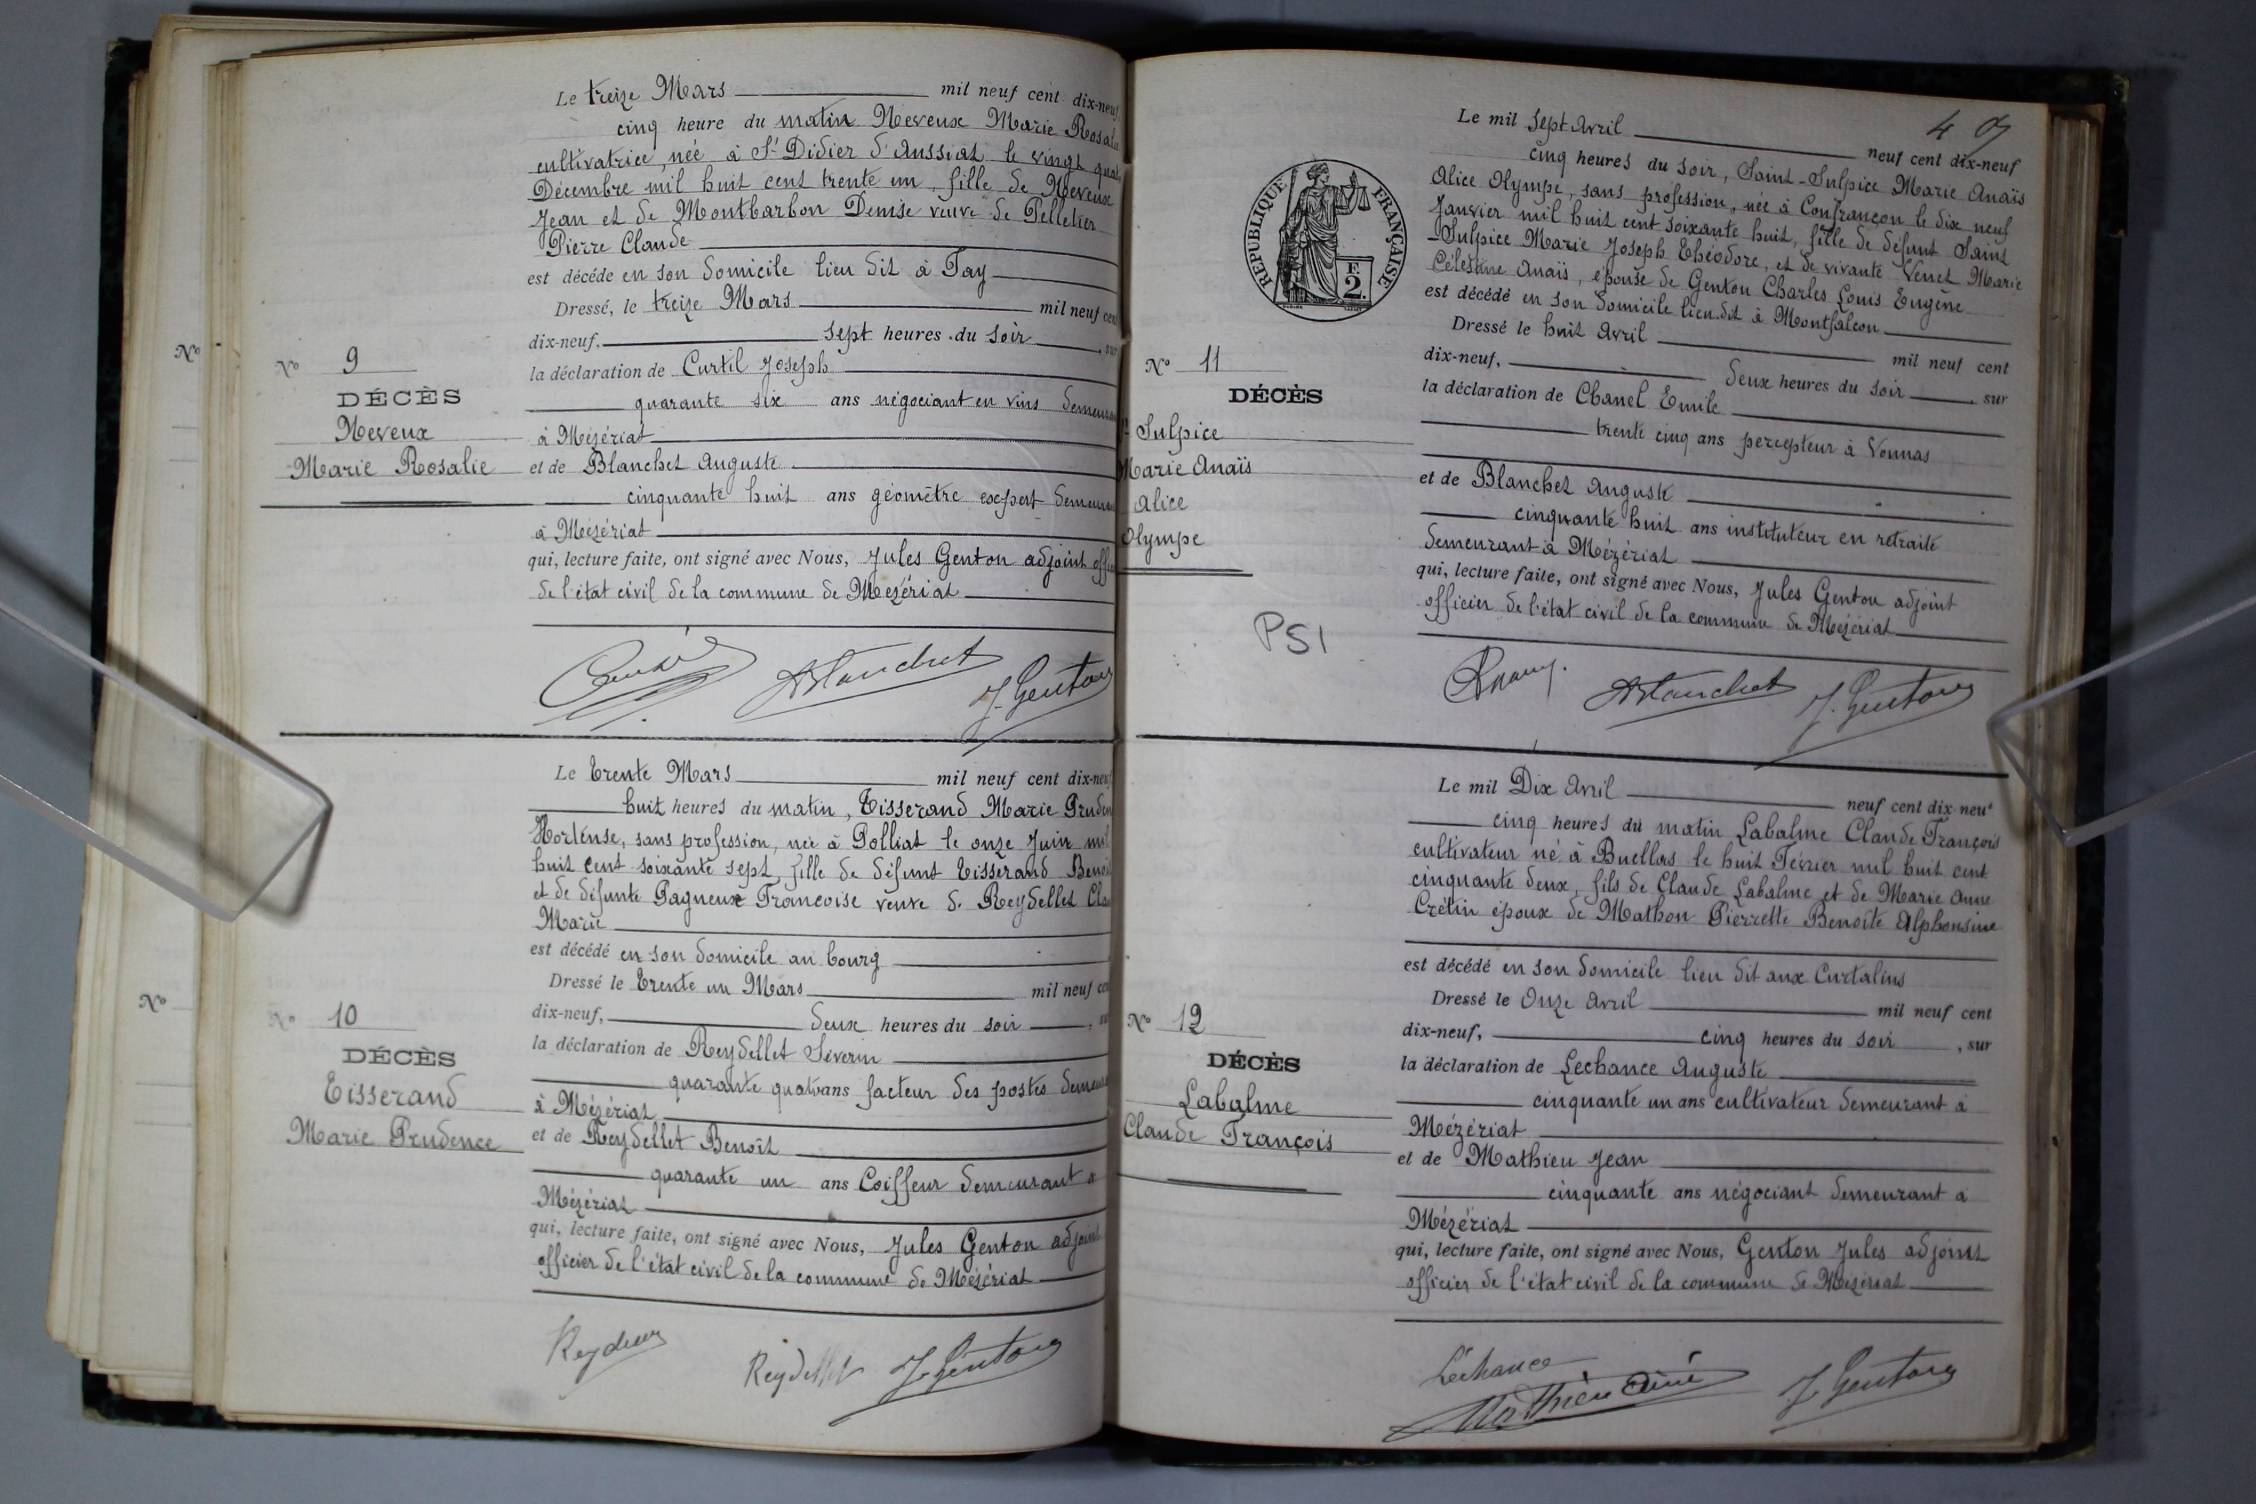 Le treize Mars mil neuf cent dix-neuf,
cinq heure du matin Neveux Marie Rosalie
cultivatrice, née à St Didier d'Aussiat le vingt
Décembre mil huit cent trente un, fille de Neveux
Jean et de Montbarbon Denise veuve de Pelletier
Pierre Claude
est décédé en son domicile lieu dit à Tay
Dressé, le treize Mars mil neuf cent
dix-neuf, sept heures du soir, sur
la déclaration de Curtil Joseph
quarante six ans négociant en vins
à Mézériat
et de Blanchet Auguste
cinquante huit ans géomètre expert
à Mézériat
qui, lecture faite, ont signé avec Nous, Jules Genton adjoint
de l'état civil de la commune de Mézériat
Nº
Nº 9
DÉCÈS
Neveux
Marie Rosalie
Blanchet J. Genton
Le trente Mars mil neuf cent dix-neuf
huit heures du matin, Tisserand Marie
Hortense, sans profession, née à Polliat le onze Juin mil
huit cent soixante sept, fille de défunt Tisserand Benoit
et de défunte Pagneux Françoise veuve de Reydellet
Marie
est décédé en son domicile au bourg
Dressé le trente un Mars mil neuf cent
dix-neuf, deux heures du soir, sur
la déclaration de Reydellet Séverin
quarante quatre ans facteur des postes
à Mézériat
et de Reydellet Benoît
quarante un ans Coiffeur demeurant à
Mézériat
qui, lecture faite, ont signé avec Nous, Jules Genton adjoint
officier de l'état civil de la commune de Mézériat
Nº
Nº 10
DÉCÈS
Tisserand
Marie Prudence
Reydellet J. Genton
Le mil sept Avril neuf cent dix-neuf
cinq heures du soir, Saint-Sulpice Marie Anaïs
Alice Olympe, sans profession, née à Confrançon le dix neuf
Janvier mil huit cent soixante huit, fille de défunt Saint
-Sulpice Marie Joseph Théodore, et de vivante Venet Marie
Célestine Anaïs, épouse de Genton Charles Louis Eugène
est décédé en son domicile lieu dit à Montfalcon
Dressé le huit Avril mil neuf cent
dix-neuf, deux heures du soir, sur
la déclaration de Chanel Emile
trente cinq ans percepteur à Vonnas
et de Blanchet Auguste
cinquante huit ans instituteur en retraite
demeurant à Mézériat
qui, lecture faite, ont signé avec Nous, Jules Genton adjoint
officier de l'état civil de la commune de Mézériat
RÉPUBLIQUE FRANÇAISE
F.
2.
Nº 11
DÉCÈS
St Sulpice
Marie Anaïs
Alice
Olympe
PS1
Blanchet J. Genton
Le mil Dix Avril neuf cent dix-neuf
cinq heures du matin Labalme Claude François
cultivateur né à Buellas le huit Février mil huit cent
cinquante deux, fils de Claude Labalme et de Marie Anne
Crétin époux de Mathon Pierrette Benoîte Alphonsine
est décédé en son domicile lieu dit aux Curtalins
Dressé le Onze Avril mil neuf cent
dix-neuf, cinq heures du soir, sur
la déclaration de Lechance Auguste
cinquante un ans cultivateur demeurant à
Mézériat
et de Mathieu Jean
cinquante ans négociant demeurant à
Mézériat
qui, lecture faite, ont signé avec Nous, Genton Jules adjoint
officier de l'état civil de la commune de Mézériat
Nº 12
DÉCÈS
Labalme
Claude François
Léchance
J. Genton